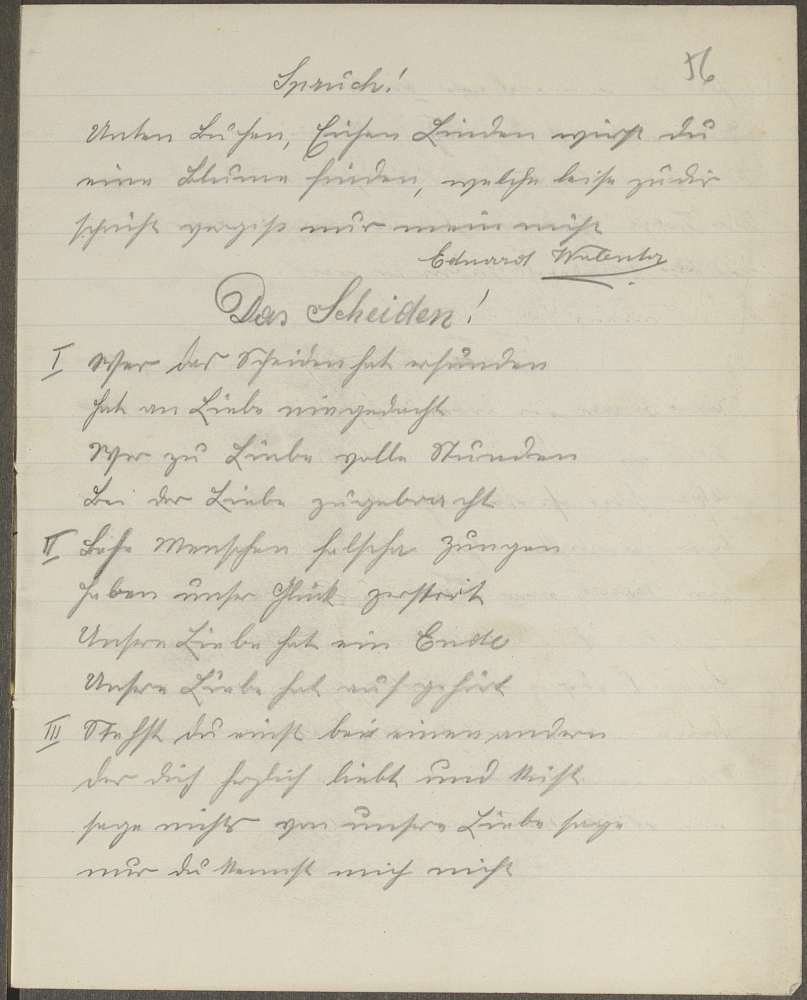 56
Spruch!
Unten Buchen, Eichen Linden wirst du
eine Blume finden, welche leise zu dir
spricht vergiss nur mein nicht
Eduard Walenta
Das Scheiden!
I Wer das Scheiden hat erfunden
hat an Liebe nie gedacht
Wer zu Liebe volle Stunden
Bei der Liebe zugebracht
II Böse Menschen falsche Zungen
haben unser Glück zerstört
Unsere Liebe hat ein Ende
Unsere Liebe hat aufgehört
III Stehst du einst bei einen andern
der dich herzlich liebt und küsst
sage nichts von unsere Liebe sage
nur du kennst mich nicht